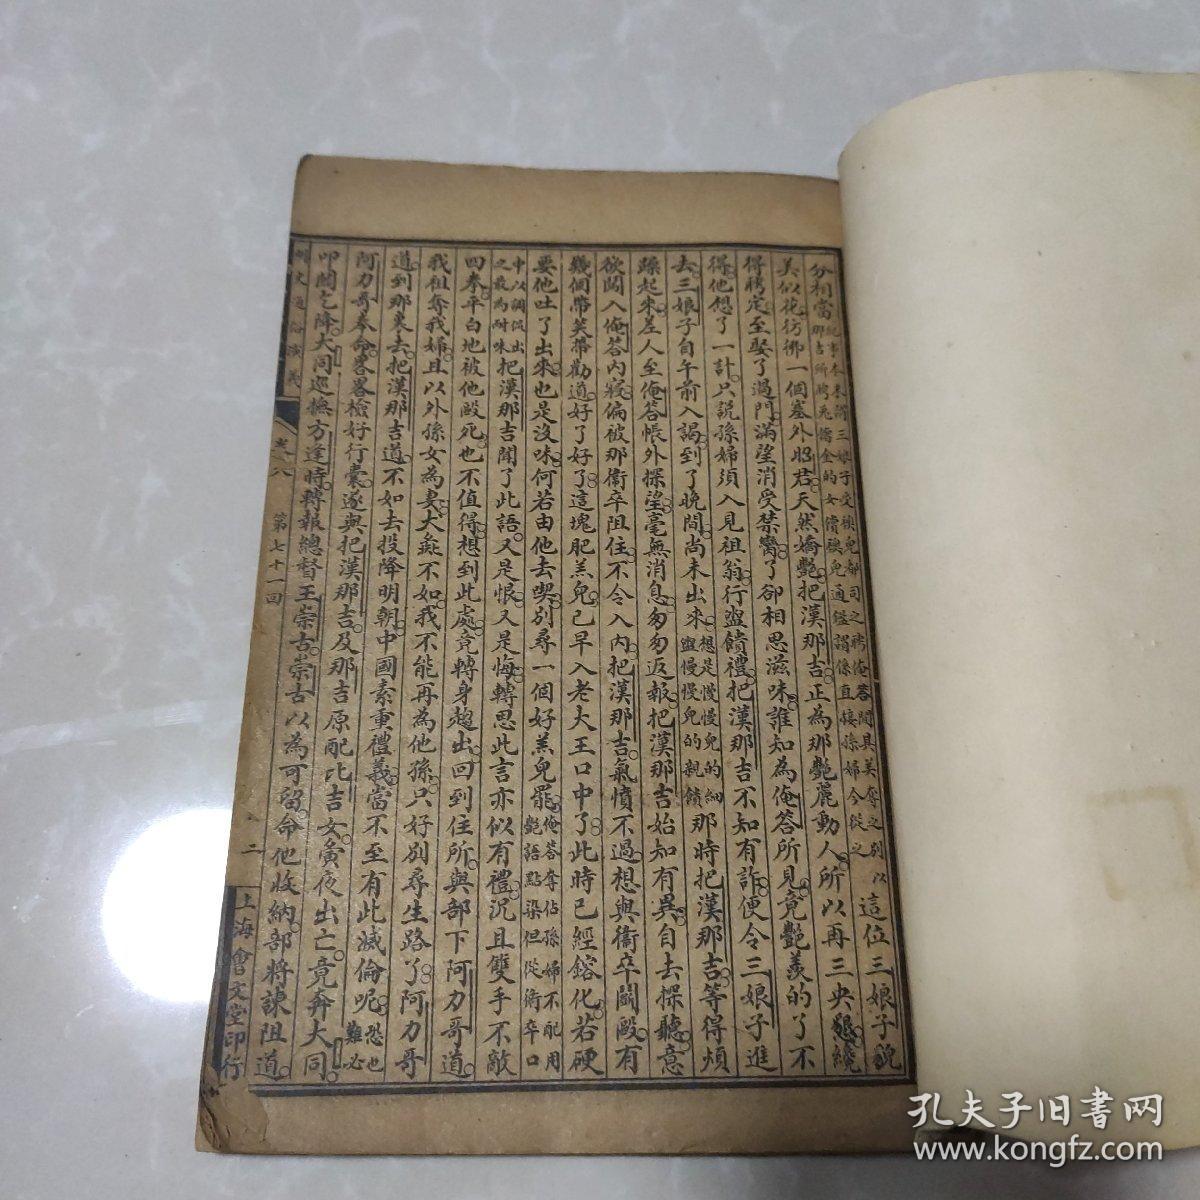 分相當紀事本末謂三娘子受襖兒都司之聘俺荅聞其美奪之別以
那吉所聘兎儕金的女償襖兒通鑑謂係直娶孫婦今從之這位三娘子貌
美似花彷彿一個塞外昭君天然嬌艷把漢那吉正為那艷麗動人所以再三央懇纔
得聘定至娶了過門滿望消受禁臠了卻相思滋味誰知為俺荅所見竟艷羨的了不
得他想了一計只說孫婦須入見祖翁行盥饋禮把漢那吉不知有詐便令三娘子進
去三娘子自午前入謁到了晚間尚未出來想是慢慢兒的細
盥慢慢兒的親饋那時把漢那吉等得煩
躁起來差人至俺荅帳外探望毫無消息匆匆返報把漢那吉始知有異自去探聽意
欲闖入俺荅內寢偏被那衛卒阻住不令入內把漢那吉氣憤不過想與衛卒鬭毆有
幾個帶笑帶勸道好了好了這塊肥羔兒已早入老大王口中了此時已經鎔化若硬
要他吐了出來也是沒味何若由他去喫別尋一個好羔兒罷俺荅奪佔孫婦不配用
艷語點染但從衛卒口
中以調侃出
之最為耐味把漢那吉聞了此語又是恨又是悔轉思此言亦似有禮沉且雙手不敵
四拳平白地被他毆死也不值得想到此處竟轉身趨出回到住所與部下阿力哥道
我祖奪我婦且以外孫女為妻大彘不如我不能再為他孫只好別尋生路了阿力哥
道到那裏去把漢那吉道不如去投降明朝中國素重禮義當不至有此滅倫呢恐也
難必
阿力哥奉命畧畧檢好行囊遂與把漢那吉及那吉原配比吉女夤夜出亡竟奔大同
叩關乞降大同巡撫方逢時轉報總督王崇古崇古以為可留命他收納部將諫阻道
明史通俗演義 卷八 第七十一回 二 上海會文堂印行
孔夫子旧書网
www.kongfz.com